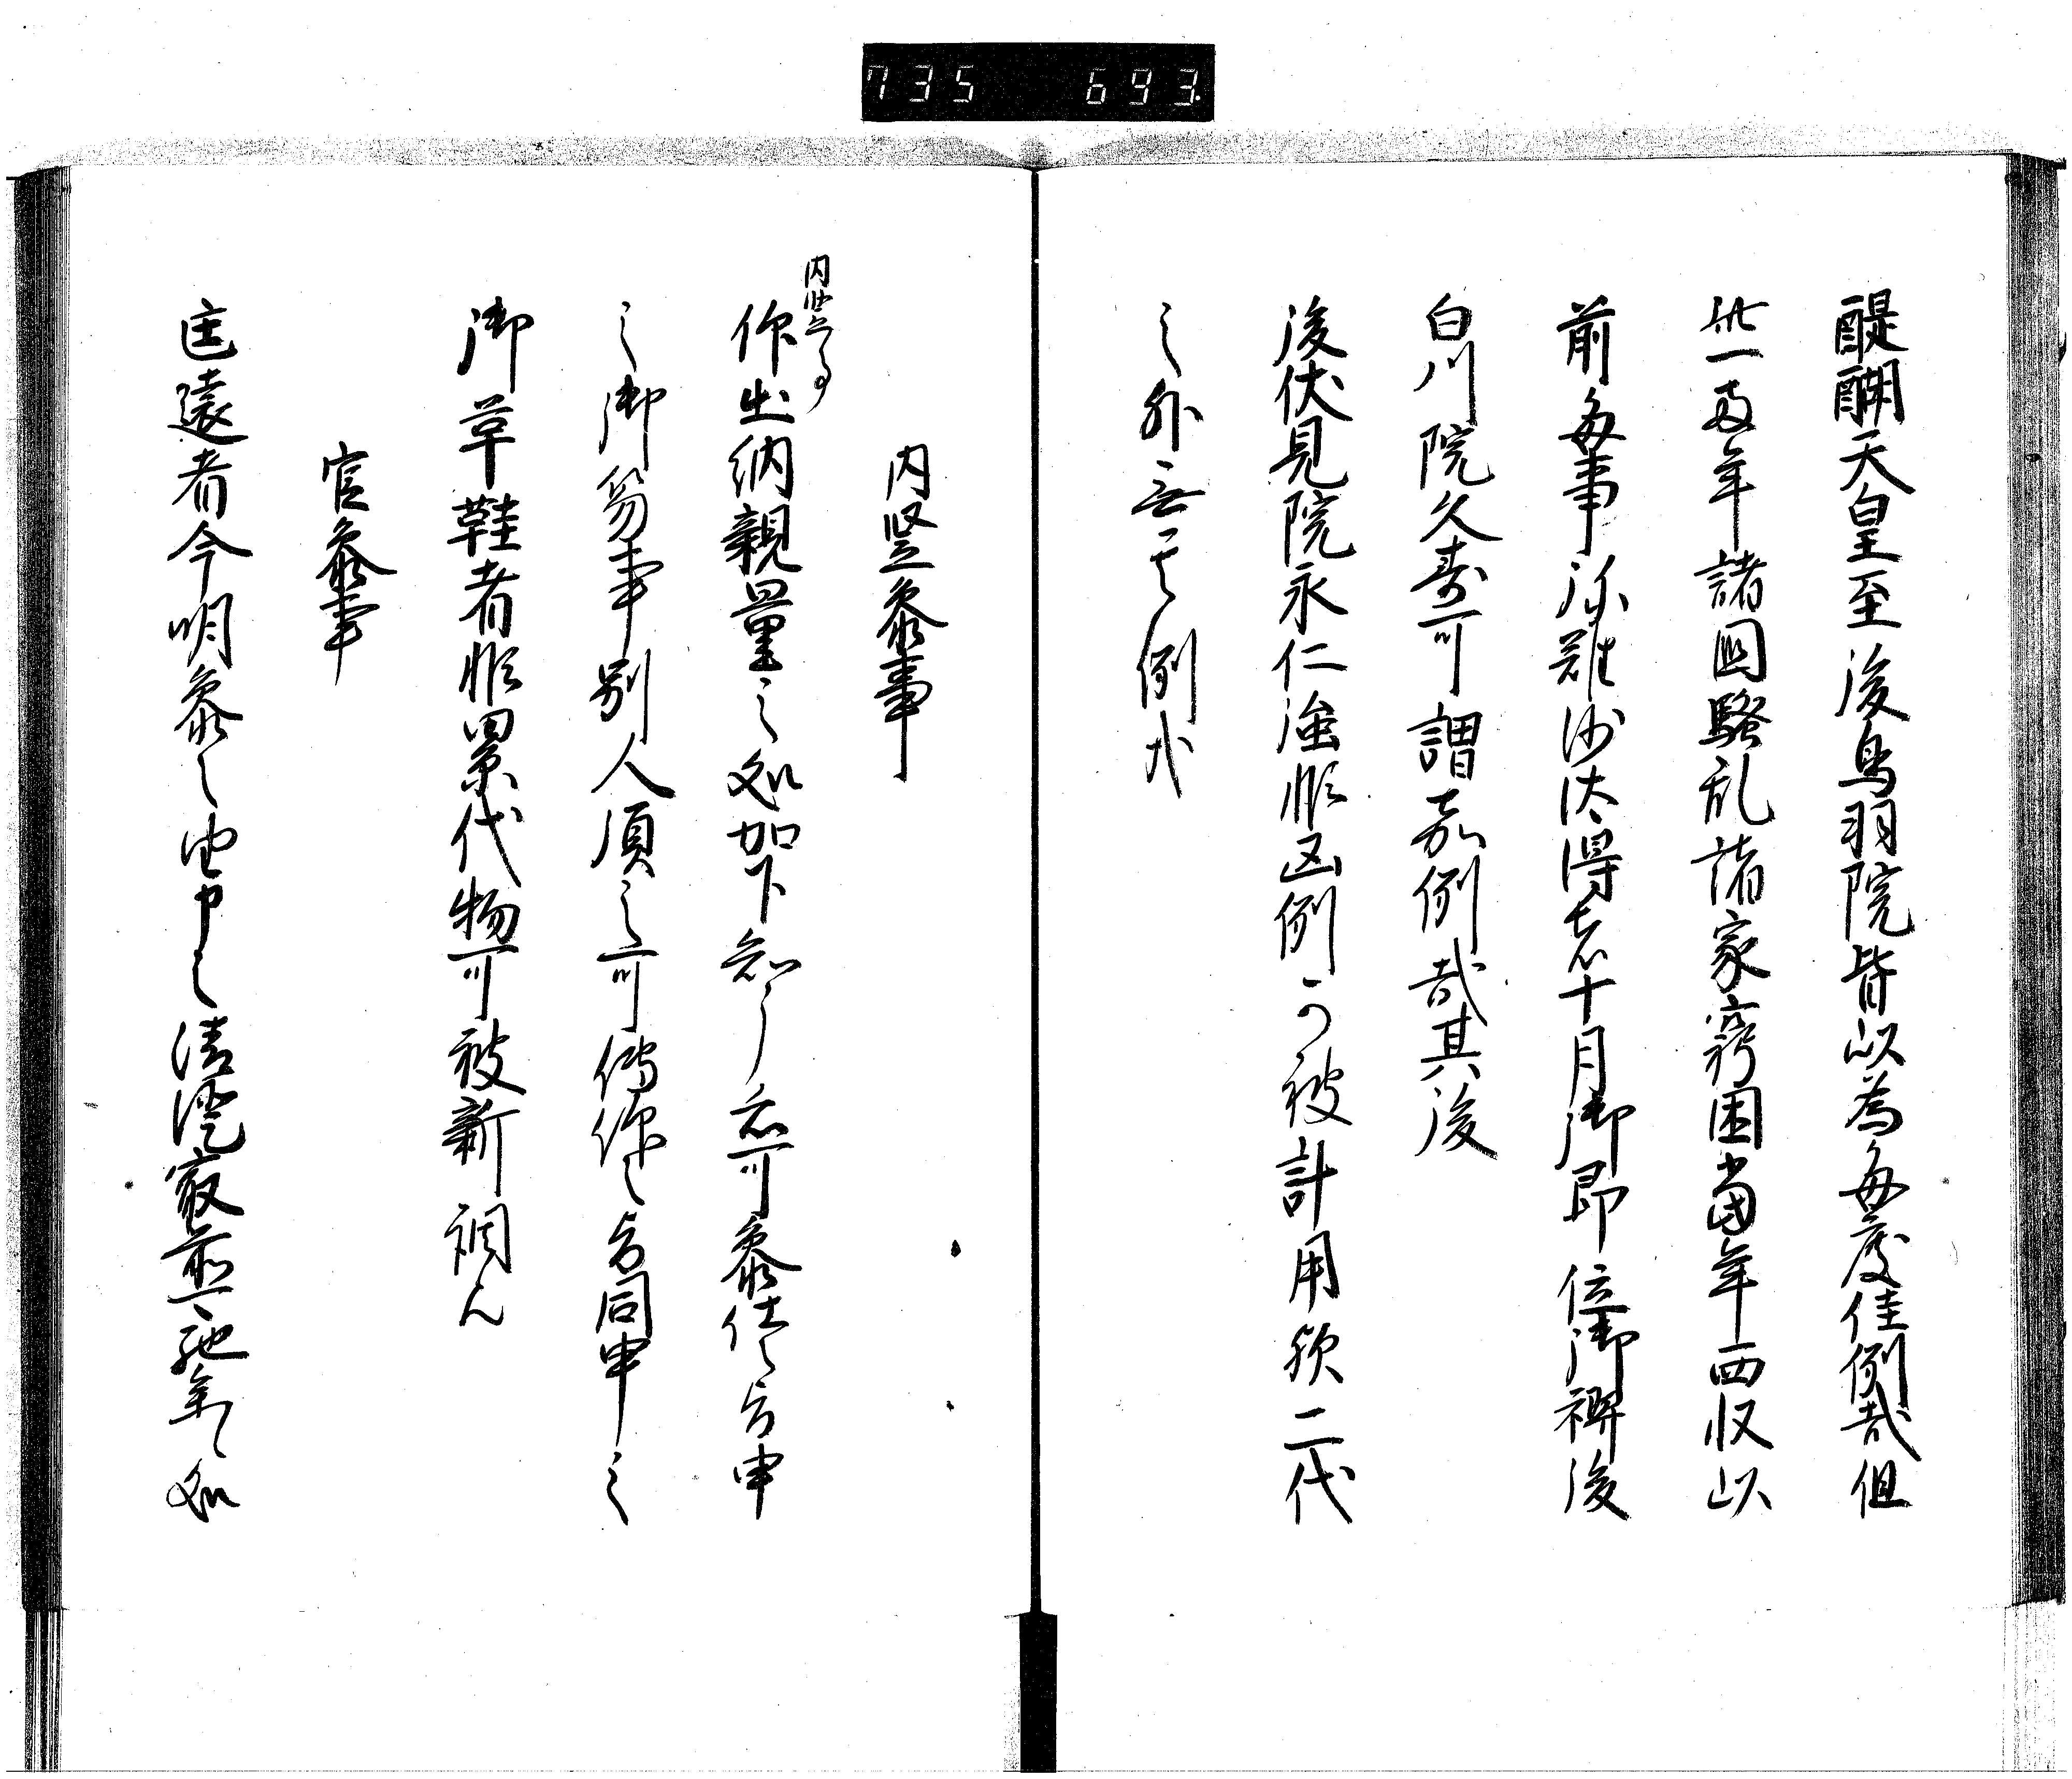 735 693
醍醐天皇至後鳥羽院皆以為毎度佳例哉但
此一両年諸国騒乱諸家窮困当年西収以
前毎事弥難沙汰得者十月御即位御禊後
白川院久寿可謂嘉例哉其後
後伏見院永仁強非凶例可被計用欤二代
之外無其例哉
内竪参事
内竪事
仰出納親量之処加下知了忩可参仕之由申
之御笏事別人須之可伝仰之由同申之
御草鞋者非累代物可被新調
官参事
匡遠者今明参之由申之清澄最前馳参之処